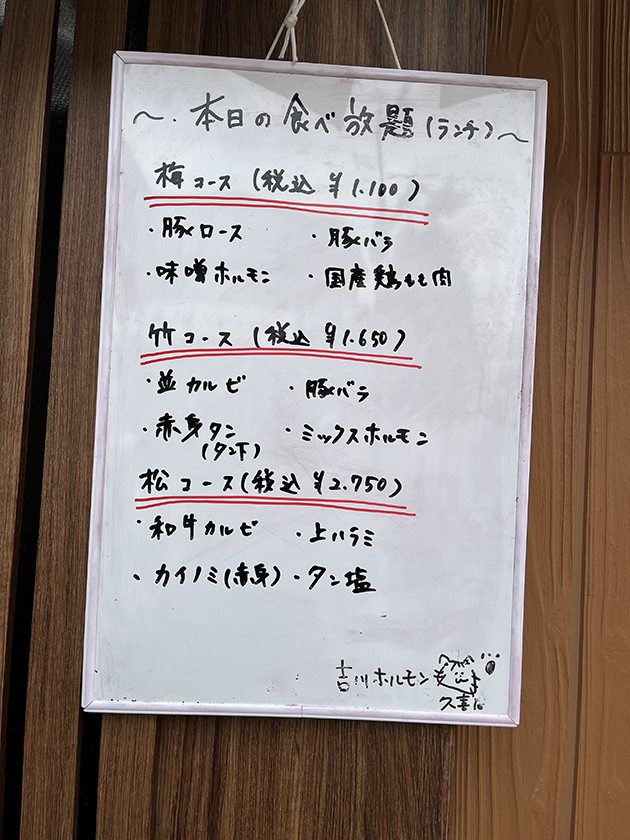 ～.本日の食べ放題(ランチ)～
梅コース (税込 ¥1.100)
・豚ロース ・豚バラ
・味噌ホルモン ・国産鶏もも肉
竹コース (税込 ¥1.650)
・並カルビ ・豚バラ
・赤身タン ・ミックスホルモン
(タン下)
松コース(税込 ¥2.750)
・和牛カルビ ・上ハラミ
・カイノミ(赤身) ・タン塩
吉川ホルモン